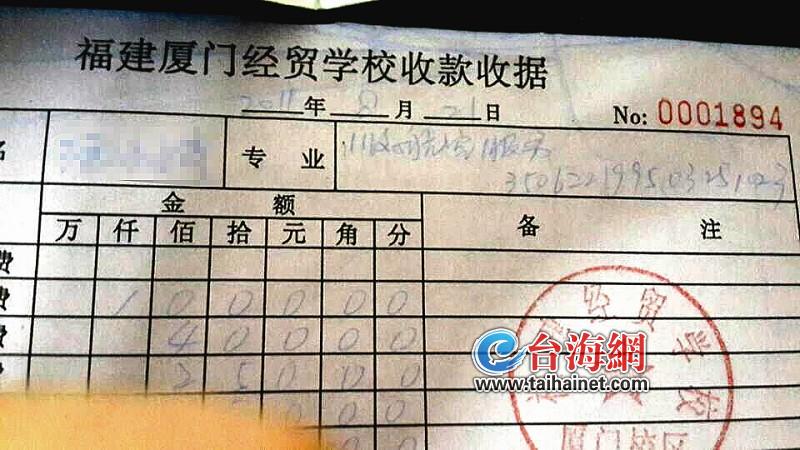 福建厦门经贸学校收款收据
2011年 月 21日 No: 0001894
名 专业
金额 备注
万 仟 佰 拾 元 角 分
费
费 1 0 0 0 0 0
费 4 0 0 0 0
2 5 0 0 0
0 0 0
0 0
经贸学校
厦门校区
e台海網
www.taihainet.com